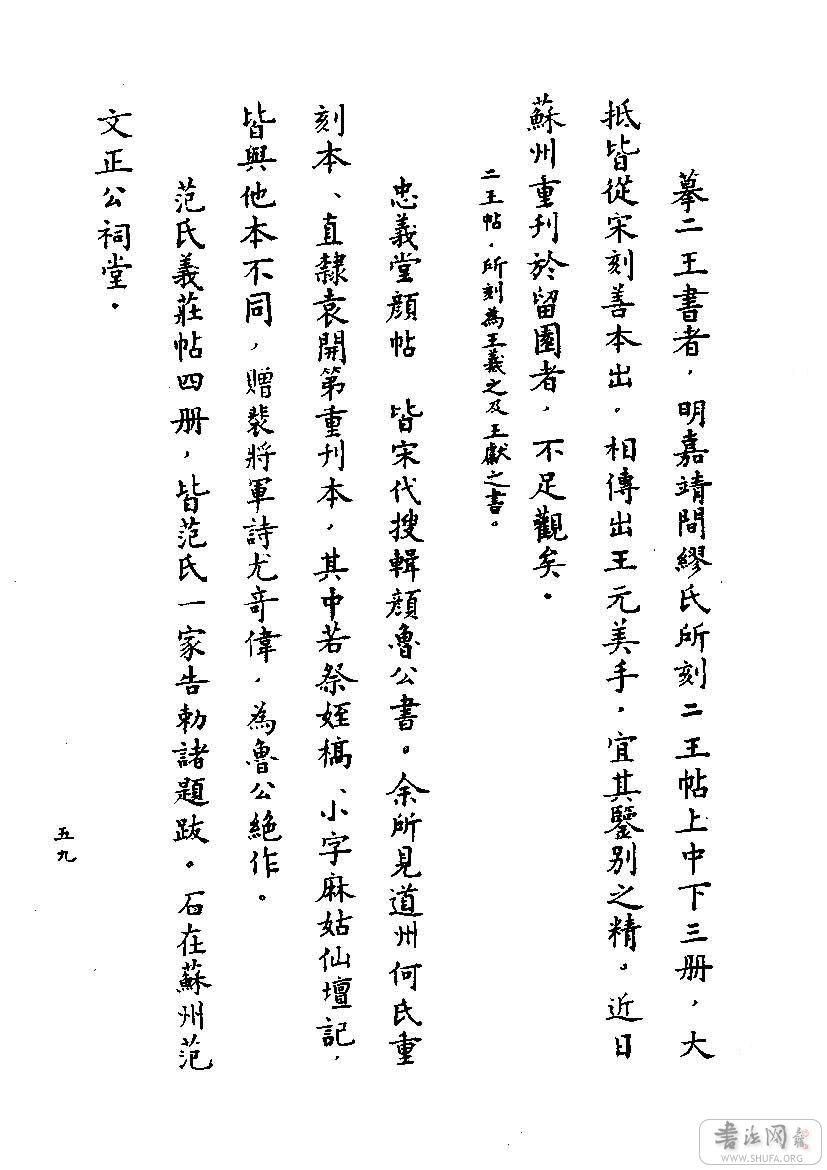 摹二王書者，明嘉靖間繆氏所刻二王帖上中下三册，大
抵皆從宋刻善本出。相傳出王元美手，宜其鑒別之精。近日
蘇州重刊於留園者，不足觀矣。
二王帖，所刻為王羲之及王獻之書。
忠義堂顏帖　皆宋代搜輯顏魯公書。余所見道州何氏重
刻本、直隸袁開第重刊本，其中若祭姪稿、小字麻姑仙壇記，
皆與他本不同，贈裴將軍詩尤奇偉，為魯公絕作。
范氏義莊帖四册，皆范氏一家告勅諸題跋。石在蘇州范
文正公祠堂。
五九
書法网
WWW.SHUFA.ORG